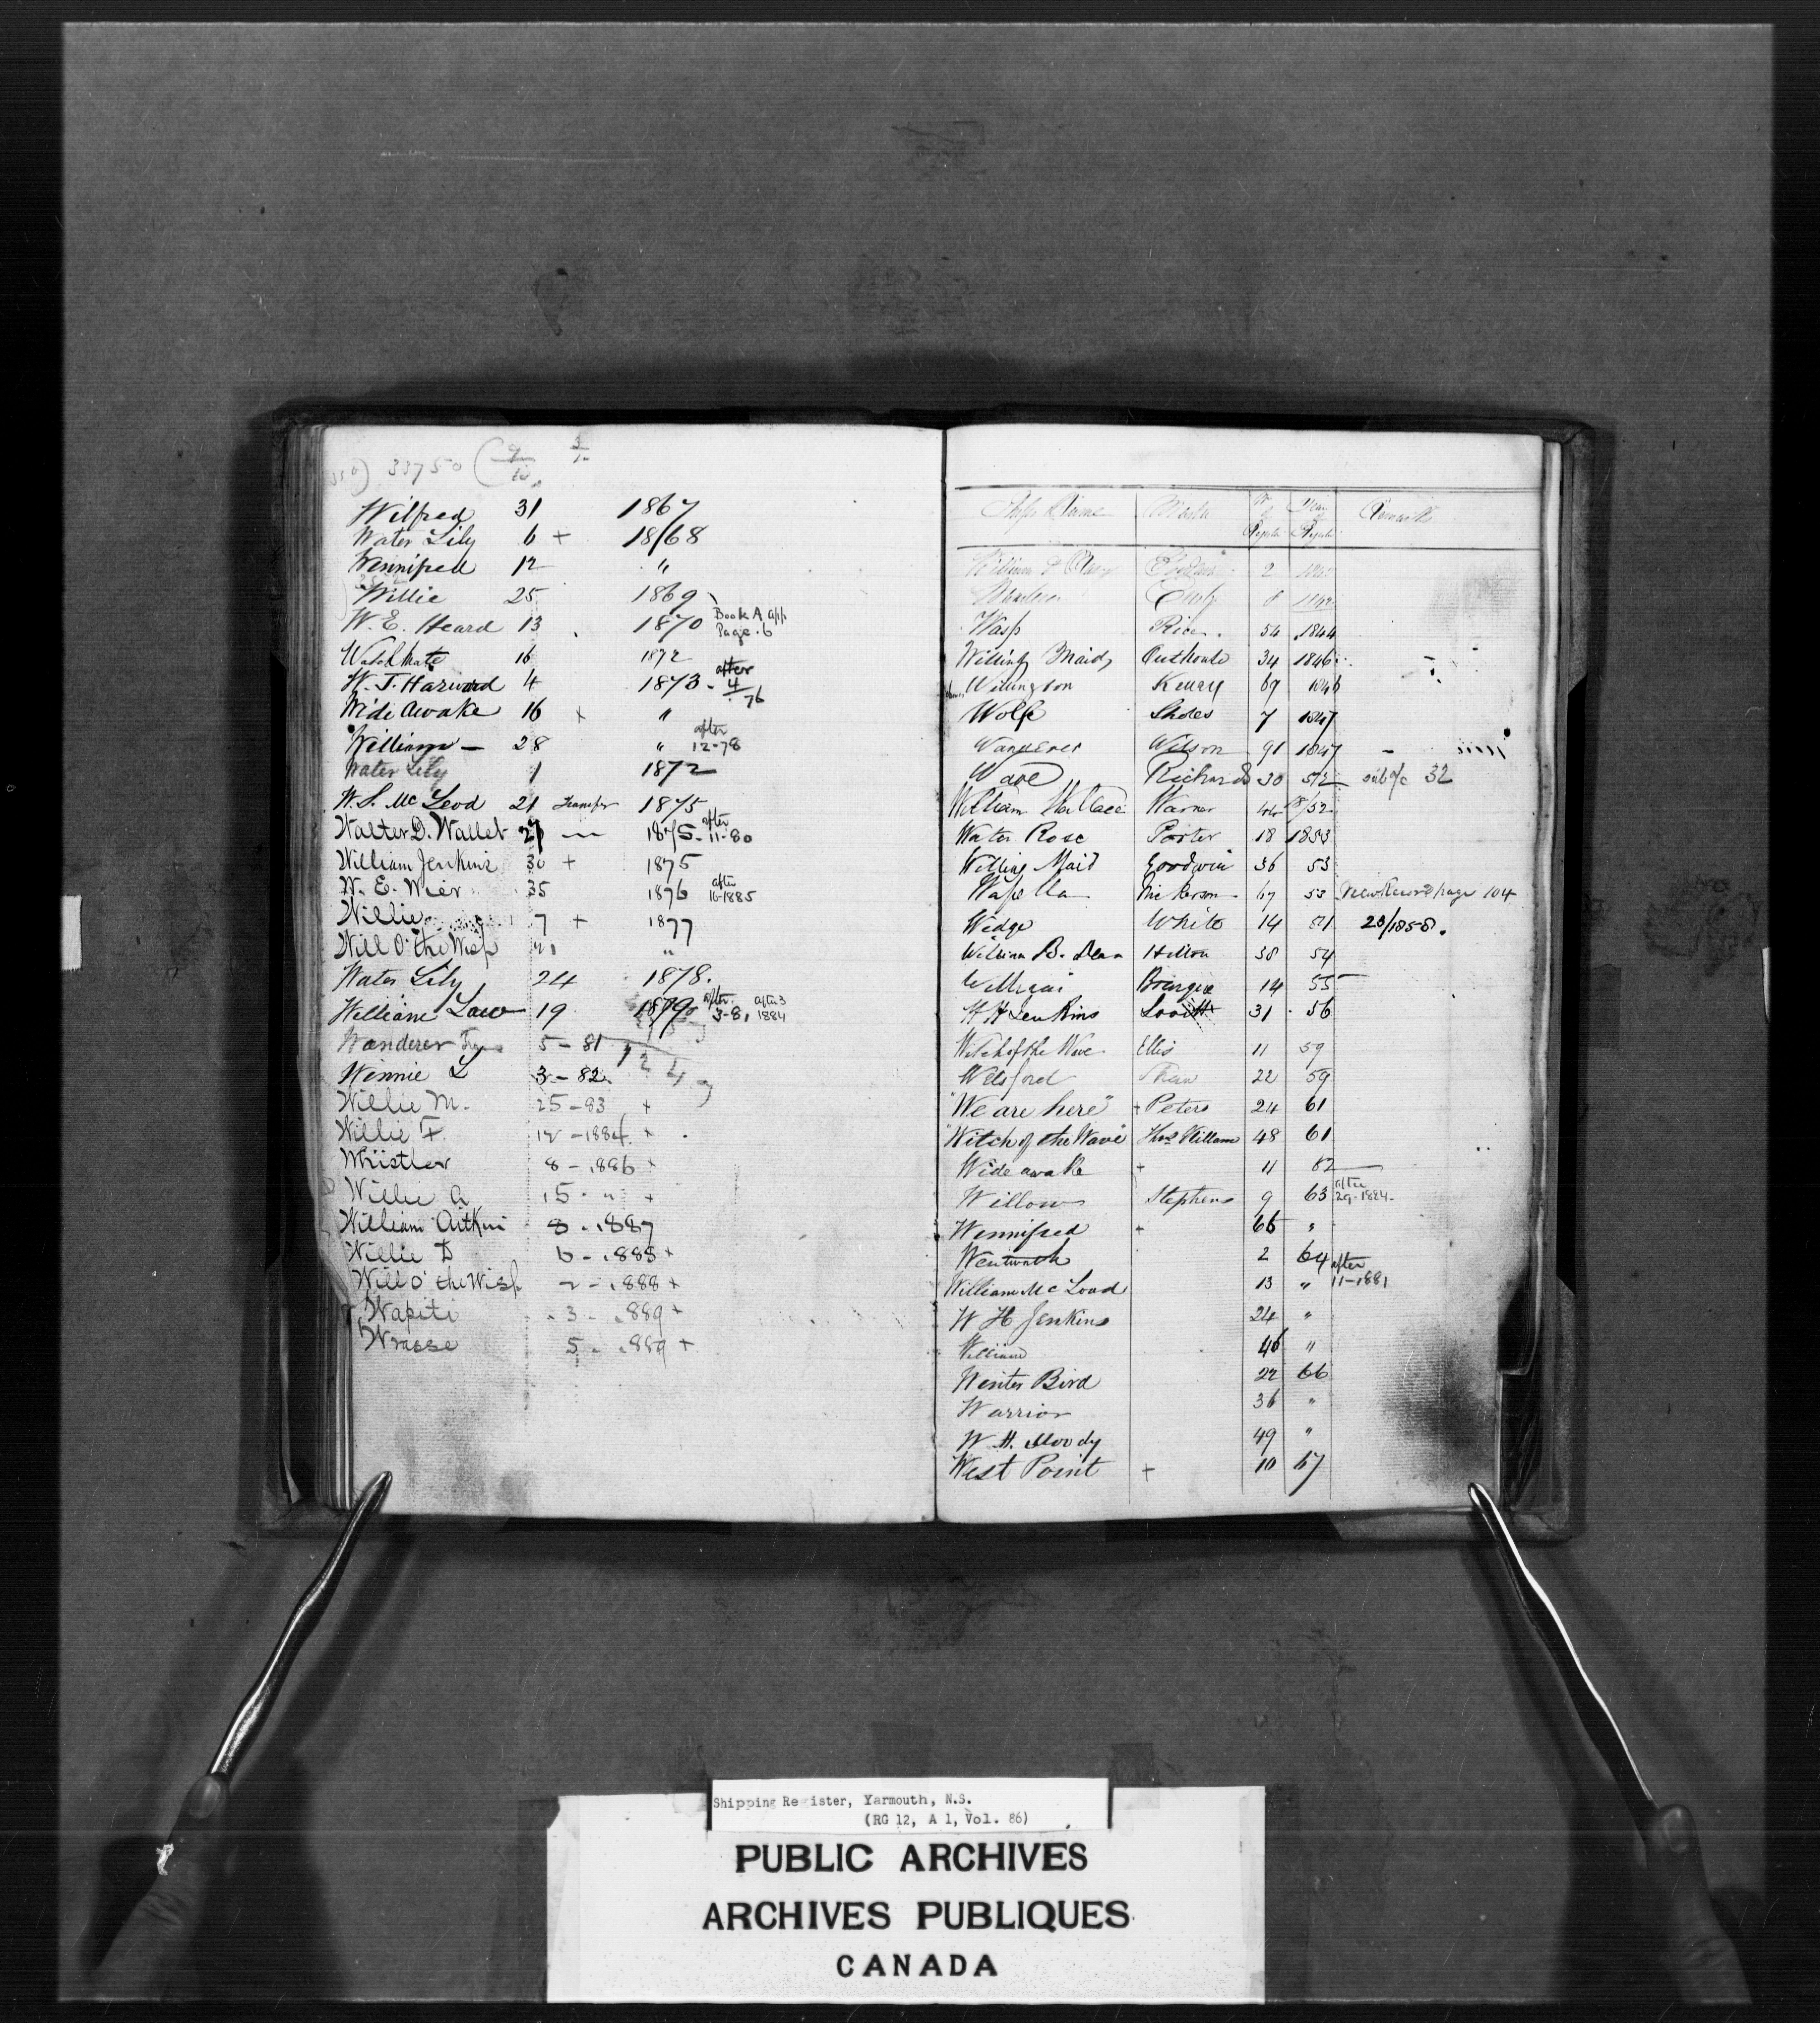 33750
Wilfred 31 1867
Water Lily 6 + 18/68
Wennifred 12 "
Willie 25 1869
W. E. Heard 13 1870 Book A app Page. 6
16 1872
W. J. Harwood 4 1873 - after 4/76
Wide Awake 16 + "
William - 28 " after 12-78
Water Lily 1 1872
W. S. McLeod 21 Transfer 1875
Walter D. Wallet 27 1875 - after 11-80
William Jenkins 30 + 1875
W. E. Wier 35 1876 after 16-1885
Willie 7 + 1877
Will O' the Wisp "
Water Lily 24 1878.
William Law 19 1879 after 3-81 after 3 1884
Wanderer 5-81
Winnie L 3-82
Willie M. 25-83 +
Willie F. 12-1884 +
Whistler 8-1886 +
Willie A 15 " +
William Aitken 8-1887
Willie D 6-1888 +
Will O' the Wisp 2-1888 +
Wapiti 3-1889 +
Wrasse 5-1889 +
Ships Name Master No of Regester Year of Remarks
William & 2
8 1842
Wasp Rice. 54 1844
Willing Maid 34 1846
Wellington Kelley 69 1846
Wolfe Sholes 7 1847
Wanderer Wilson 91 1847
Wave Richards 30 52 32
William Wallace Warner 44 /52
Water Rose Porter 18 1853
Willing Maid Goodwin 36 53
Wapella Nickerson 67 53 New Record page 104
Wedge White 14 51 23/1858.
William B. Dean Hilton 38 54
William Bourque 14 55
W H Jenkins Lovitt 31 56
Witch of the Wave Ellis 11 59
Welsford Shaw 22 59
"We are here" + Peters 24 61
"Witch of the Wave" Thos Killam 48 61
Wide awake + 11 62
Willow Stephens 9 63 after 29-1884.
Wennifred + 66 "
Wentworth 2 64
William Mc Load 13 " after 11-1881
W H Jenkins 24 "
William 46 "
Winter Bird 22 66
Warrior 36 "
W. H. Moody 49 "
West Point + 10 67
Shipping Register, Yarmouth, N.S.
(RG 12, A 1, Vol. 86)
PUBLIC ARCHIVES
ARCHIVES PUBLIQUES
CANADA